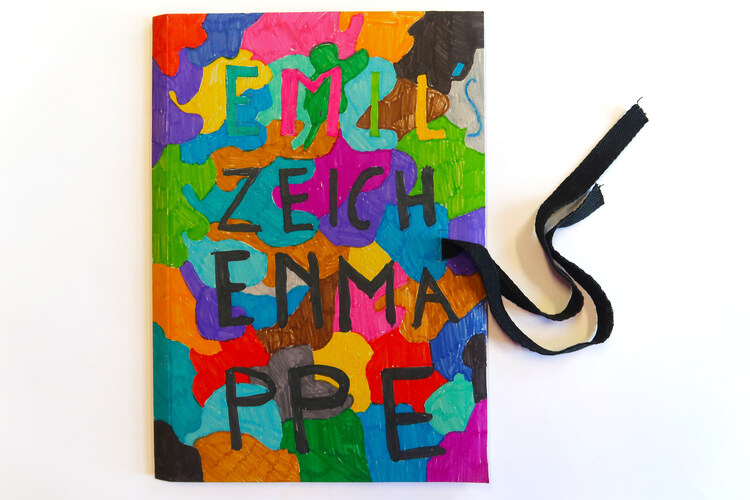 EMIL'S
ZEICH
ENMA
PPE